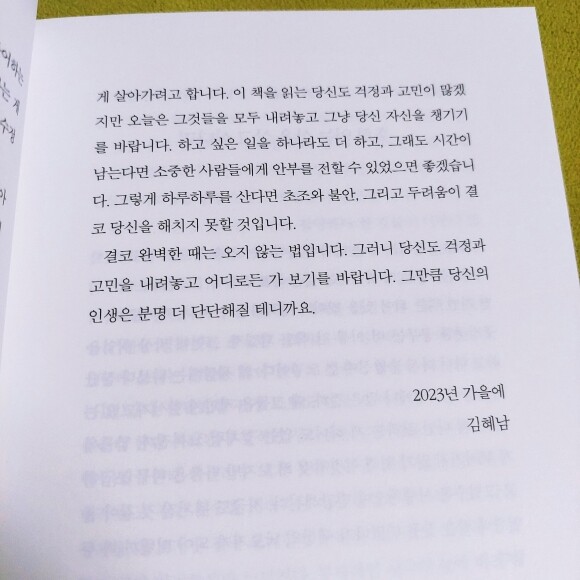 어하는
는 게
수정
아
게 살아가려고 합니다. 이 책을 읽는 당신도 걱정과 고민이 많겠
지만 오늘은 그것들을 모두 내려놓고 그냥 당신 자신을 챙기기
를 바랍니다. 하고 싶은 일을 하나라도 더 하고, 그래도 시간이
남는다면 소중한 사람들에게 안부를 전할 수 있었으면 좋겠습니
다. 그렇게 하루하루를 산다면 초조와 불안, 그리고 두려움이 결
코 당신을 해치지 못할 것입니다.
결코 완벽한 때는 오지 않는 법입니다. 그러니 당신도 걱정과
고민을 내려놓고 어디로든 가 보기를 바랍니다. 그만큼 당신의
인생은 분명 더 단단해질 테니까요.
2023년 가을에
김혜남